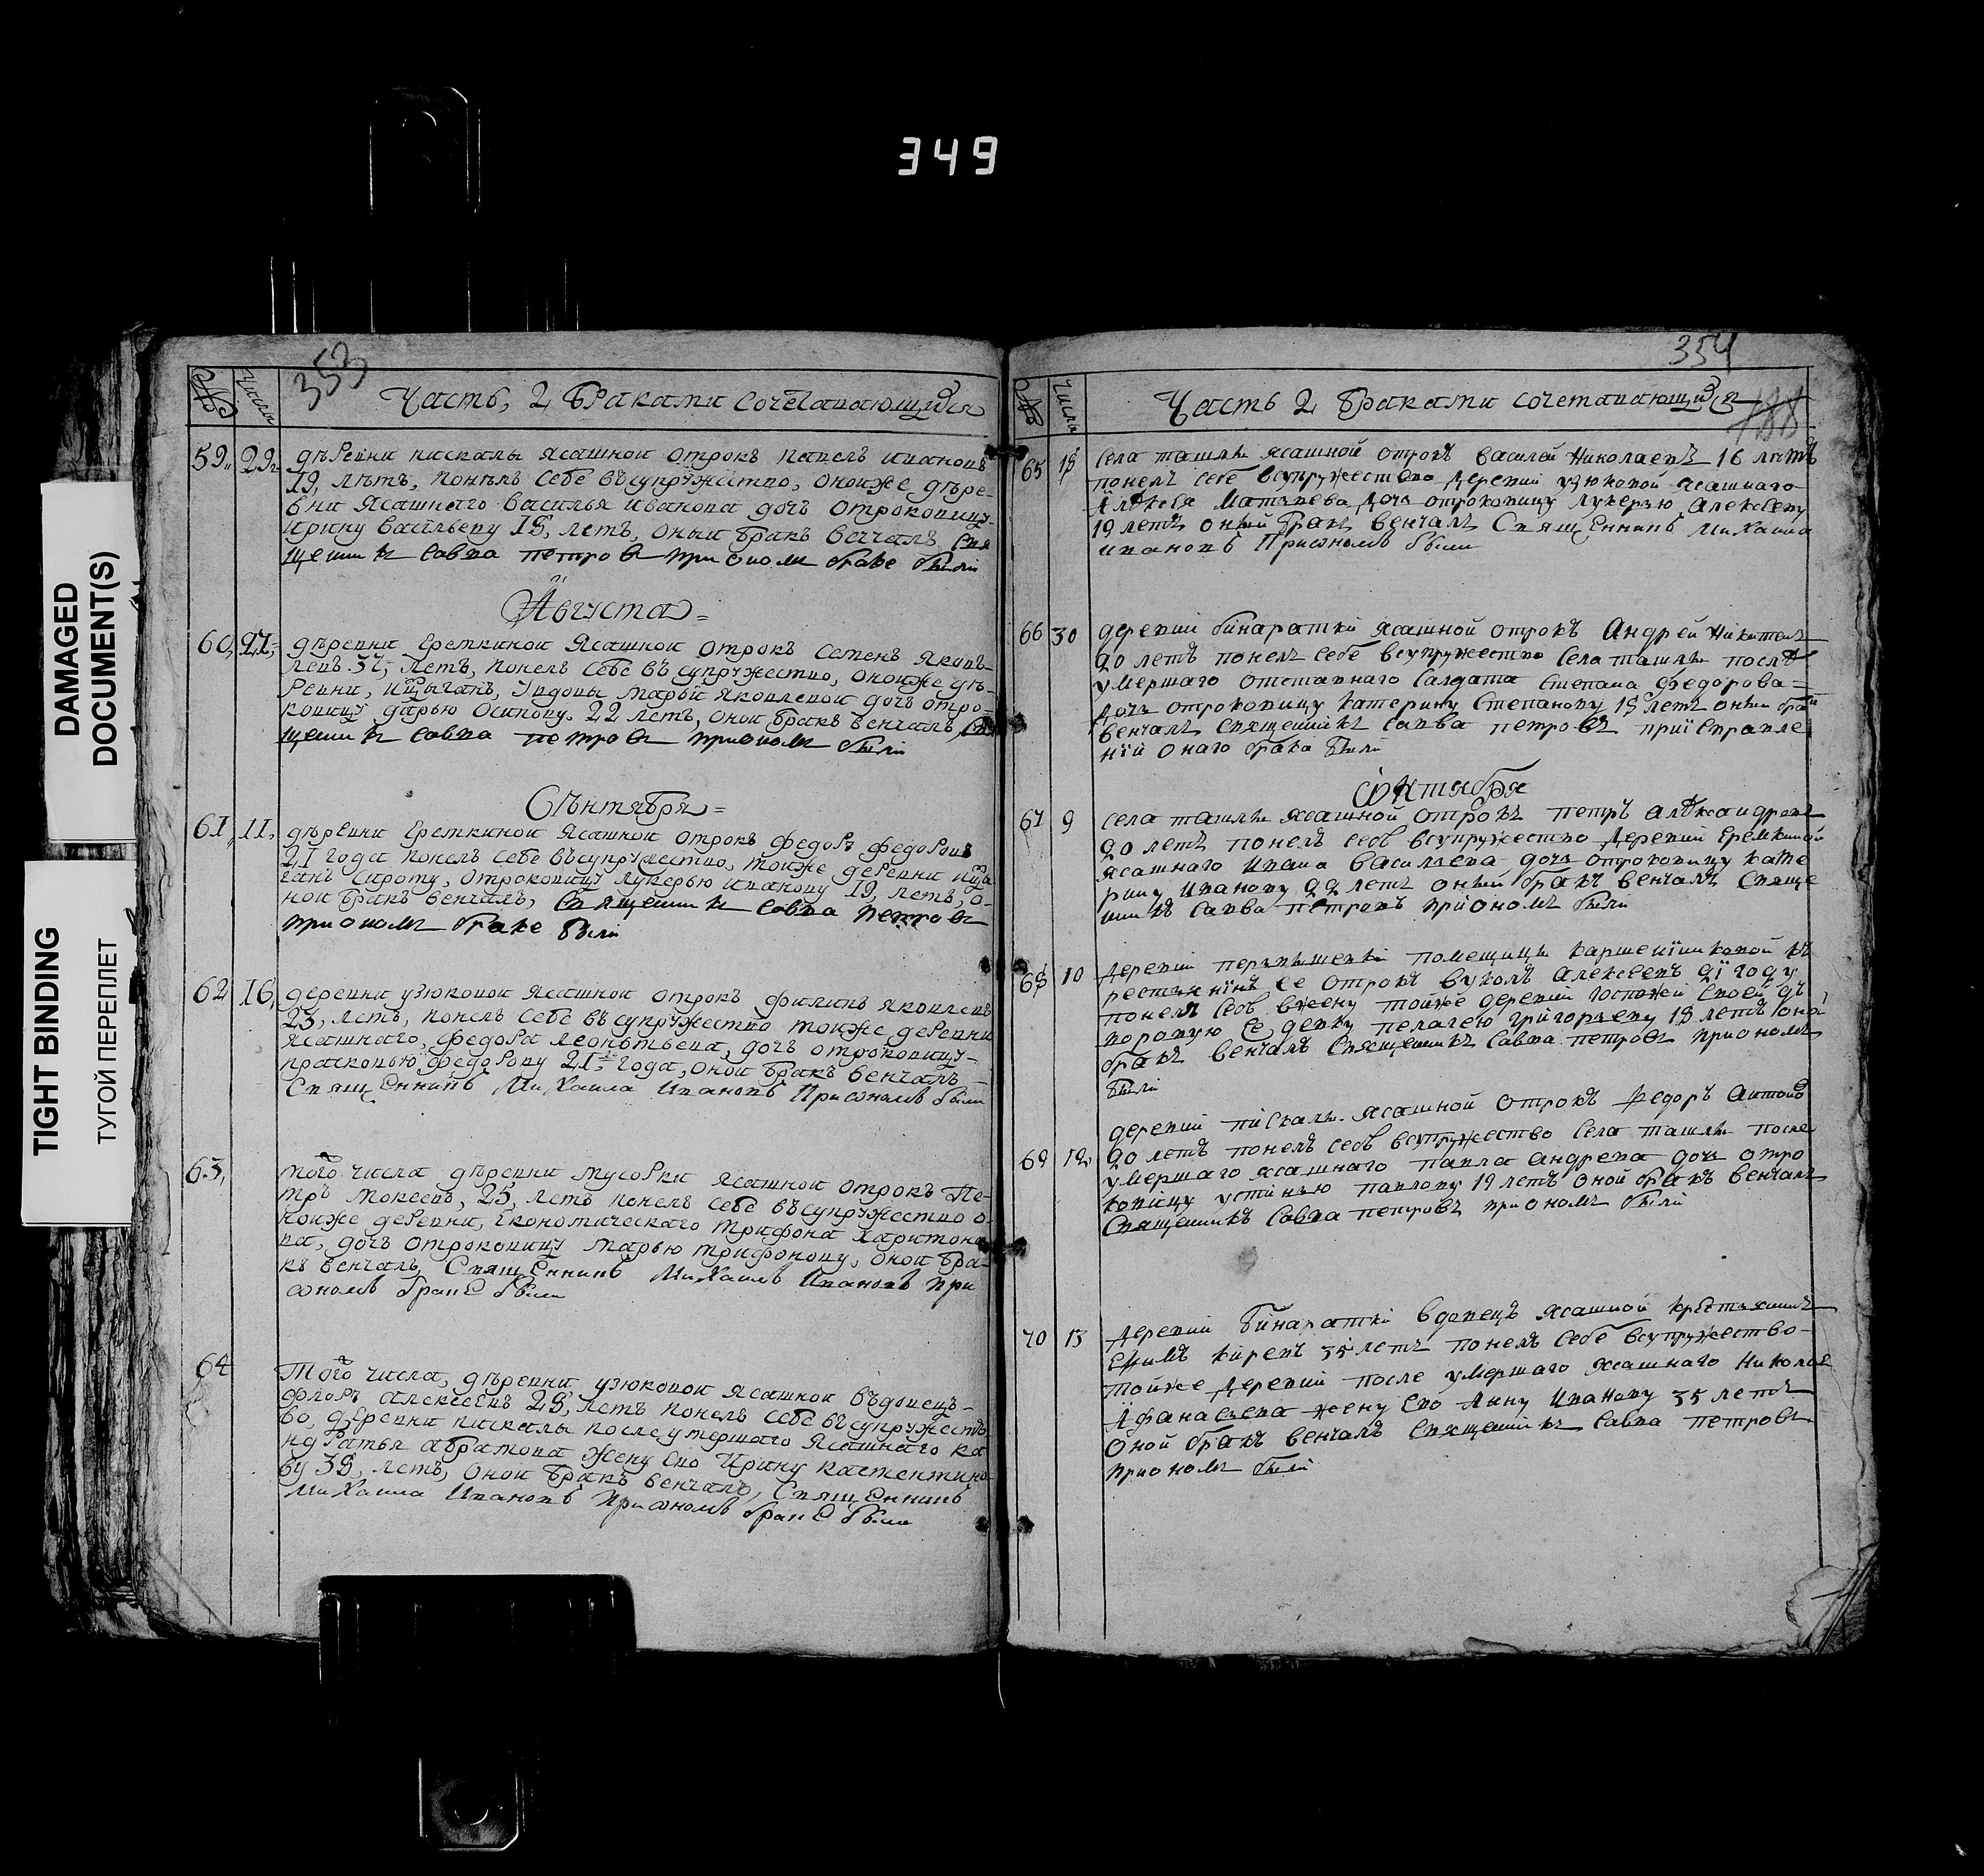 349
DAMAGED
DOCUMENT(S)
TIGHT BINDING
ТУГОЙ ПЕРЕПЛЕТ
353
№ Числы Часть, 2 браками сочетавающиися
59, 29, дѣревни пискалы ясашнои отрокъ павелъ ивановъ
19, лѣтъ, понѣлъ себе въсупружество, оноиже дѣре-
вни ясашнаго василья иванова дочь отроковицу
ирину васильеву 18, летъ, оныи бракъ венчалъ свя
щенникъ савва петровъ при ономъ браке были
Августа
60, 27, дѣревни еремкинои ясашнои отрокъ семенъ яковъ-
левъ 37, летъ, понелъ себе въ супружество, оноиже дѣ-
ревни, вдовы марьи яковлевои дочь отро-
ковицу дарью осипову 22 летъ, онои бракъ венчалъ свя
щенникъ савва петровъ приономъ были
Сѣнтября
61, 11, дѣревни еремкинои ясашнои отрокъ федоръ федоровъ
21 года понелъ себе въсупружество, тоиже деревни
сироту, отроковицу лукерью иванову 19, летъ, о-
нои бракъ венчалъ, священникъ савва петровъ
приономъ браке были
62 16, деревни узюковои ясашнои отрокъ филипъ яковлевъ
23, летъ, понелъ себе въ супружество тоиже деревни
ясашнаго, федора леонтьева, дочь отроковицу-
прасковью федорову 21, года, онои бракъ венчалъ
Священникъ Михаила Ивановъ Приономъ были
63, того числа дѣревни мусорки ясашнои отрокъ Пе-
тръ мокеевъ, 25, летъ понелъ себе въсупружество о-
ноиже деревни, економическаго трифона харитоно
ва, дочь отроковицу марью трифонову, онои бра-
къ венчалъ, Священникъ Михаилъ Ивановъ при
ономъ браке были
64 Того числа, дѣревни узюковои ясашнои въдовецъ-
флоръ алексеевъ 28, летъ понелъ себе въсупружест-
во, деревни пискалы после умершаго ясашнаго ко
ндратья абрамова жену ево Ирину кастентино
ву 38, летъ, онои бракъ венчалъ, Священникъ
Михаила Ивановъ приономъ браке были
354
188
№ Числы Часть 2 браками сочетавающиися
65 15 села ташлы ясашной отрокъ василей Николаевъ 16 лѣтъ
понелъ себе всупружество деревни узюковой ясашнаго
Алексея Матвеева дочь отроковицу лукерью алексееву
19 летъ оный бракъ венчалъ Священникъ Михаила
ивановъ Приономъ были
66 30 деревни бинаратки ясашной отрокъ Андрей Никитинъ
20 летъ понелъ себе всупружество села ташлы послѣ
умершаго отставнаго салдата степана федорова
дочь отроковицу катерину степанову 18 летъ оный бракъ
венчалъ священникъ савва петровъ при исправле
нии онаго брака были
Октября
67 9 села ташлы ясашной отрокъ петръ александровъ
20 летъ понелъ себѣ всупружество деревни еремкиной
ясашнаго ивана васильева дочь отроковицу кате
рину иванову 22 летъ оный бракъ венчалъ свяще
нникъ савва петровъ приономъ были
68 10 деревни помещицы кр
рестьянинъ ее отрокъ вуколъ алексеевъ 21 году
понелъ себѣ вжену тойже деревни госпожи своей дъ
воровую ее девку пелагею григорьеву 18 летъ оной
бракъ венчалъ священникъ савва петровъ приономъ
были
69 12, деревни пискалы ясашной отрокъ Федоръ антоновъ
20 летъ понелъ себѣ всупружество села ташлы после
умершаго ясашнаго павла андреева дочь отро
ковицу устинью павлову 19 летъ оной бракъ венчалъ
священникъ савва петровъ приономъ были
70 13 деревни бинаратки вдовецъ ясашной крестьянинъ
киреевъ 35 летъ понелъ себе всупружество
тойже деревни после умершаго ясашнаго Николая
Афанасьева жену ево Анну Иванову 35 летъ
оной бракъ венчалъ священникъ савва петровъ
приономъ были